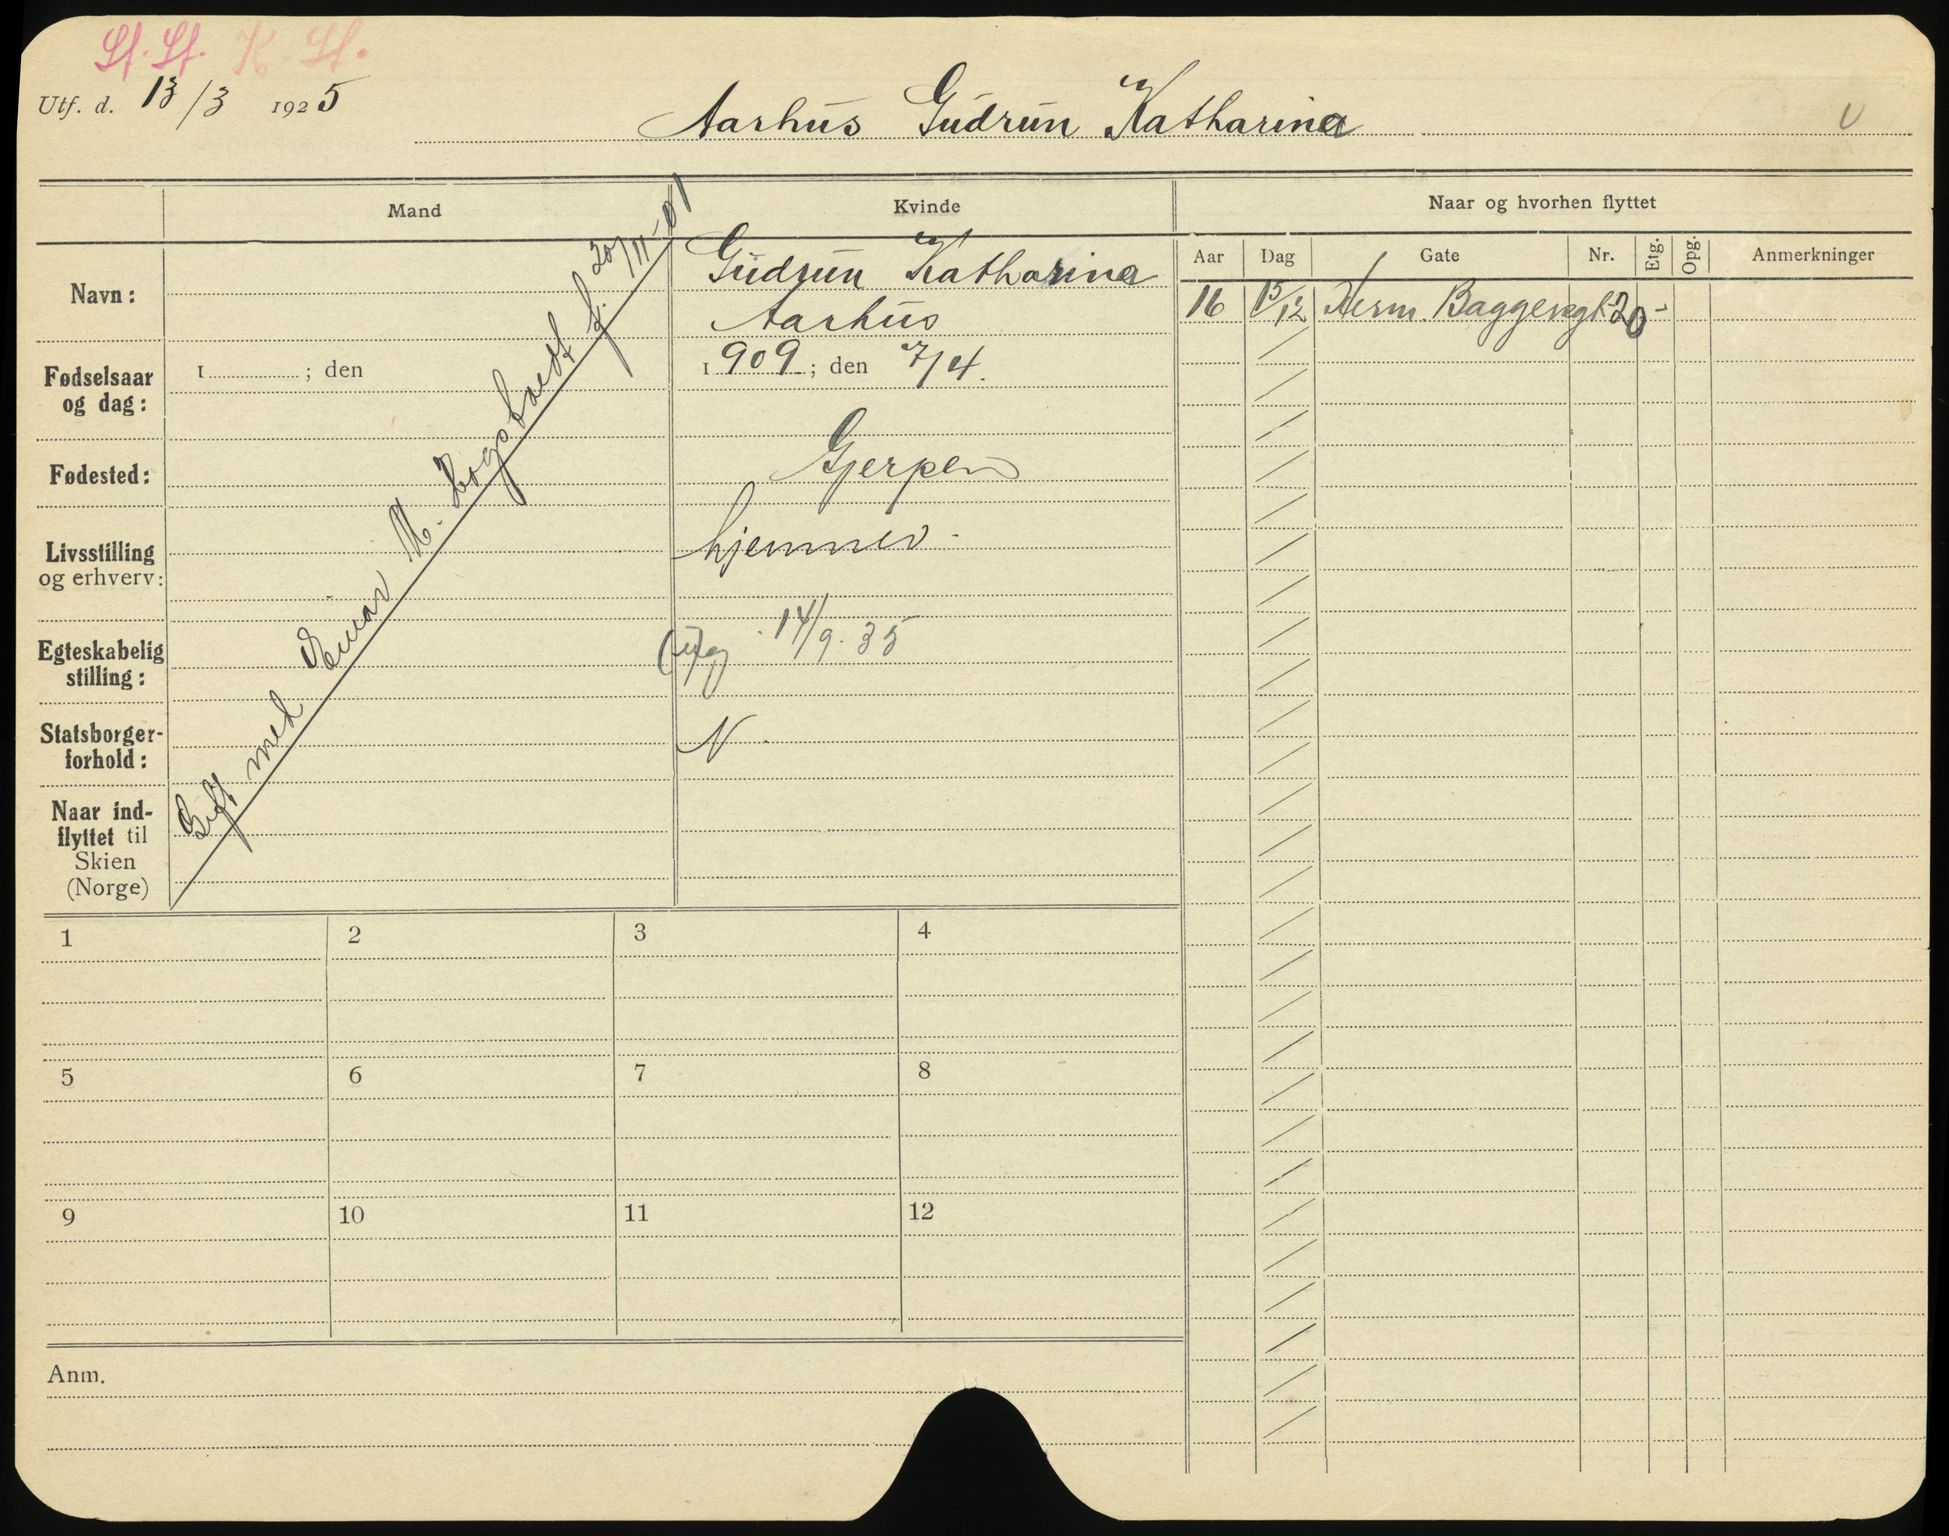 St. St. K. St.
Utf. d. 13/3 1925
Aarhus Gudrun Katharina
U
Mand
Kvinde
Naar og hvorhen flyttet
Aar Dag Gate Nr. Etg. Opg. Anmerkninger
Navn:
Gudrun Katharina
Aarhus
16 15/12 Herm. Baggesgt 20 -
Fødselsaar
og dag:
1 ; den
1909; den 7/4.
Fødested:
Gjerpen
Livsstilling
og erhverv:
hjemmev.
Egteskabelig
stilling:
(u)g 14/9. 35
Statsborger-
forhold:
N.
Naar ind-
flyttet til
Skien
(Norge)
Gift med Einar M. f. 20/11-01
1 2 3 4
5 6 7 8
9 10 11 12
Anm.